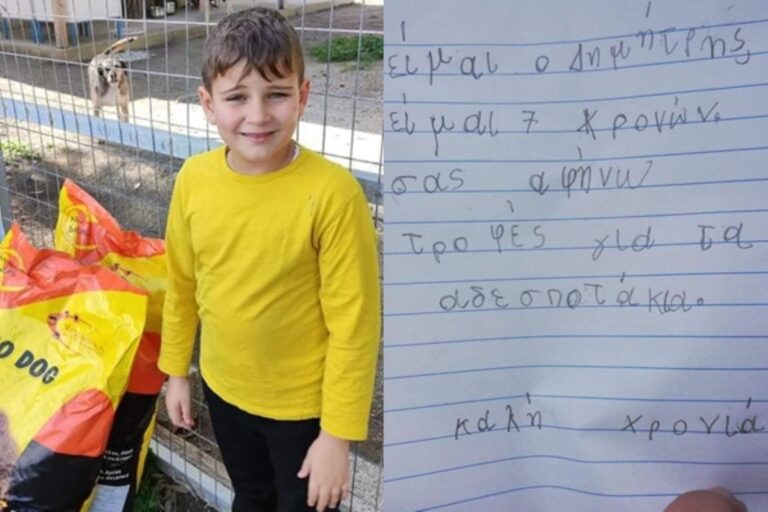 O DOG
είμαι ο Δημήτρης,
είμαι 7 χρονών.
σας αφήνω
τροφές για τα
αδεσποτάκια.
καλή χρονιά